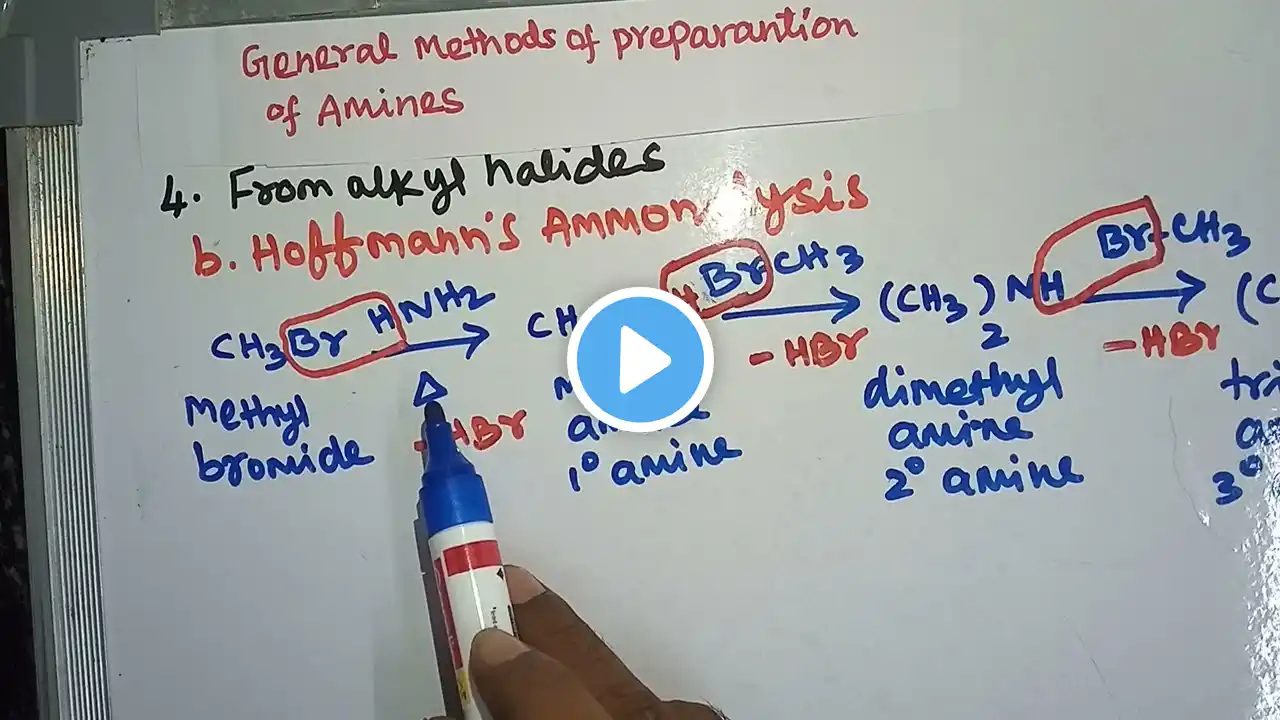 General Methods of preparantion
of Amines
4. From alkyl halides
b. Hoffmann's Ammon lysis
CH3 Br HNH2 CH H Br CH3 (CH3)2 NH Br-CH3 (C
Δ -HBr -HBr -HBr
Methyl
bromide
1° amine
dimethyl
amine
2° amine
tri
3°